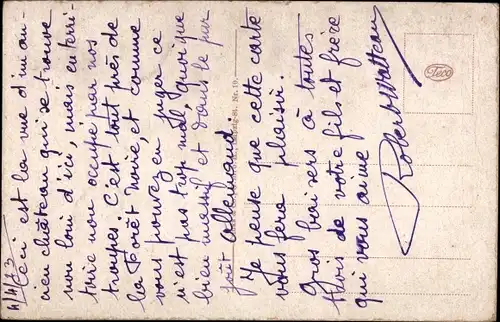 4/4/23
Ceci est la vue d'un an-
cien château qui se trouve
non loin d'ici, mais en terri-
toire non occupé par nos
troupes. C'est tout près de
la Forêt Noire, et comme
vous pouvez en juger ce
n'est pas trop mal, quoique
bien massif et dans le pur
goût allemand.
Je pense que cette carte
vous fera plaisir.
Gros baisers à toutes
trois de votre fils et frère
qui vous aime
Robert Watteau
Teco
Nr. 19